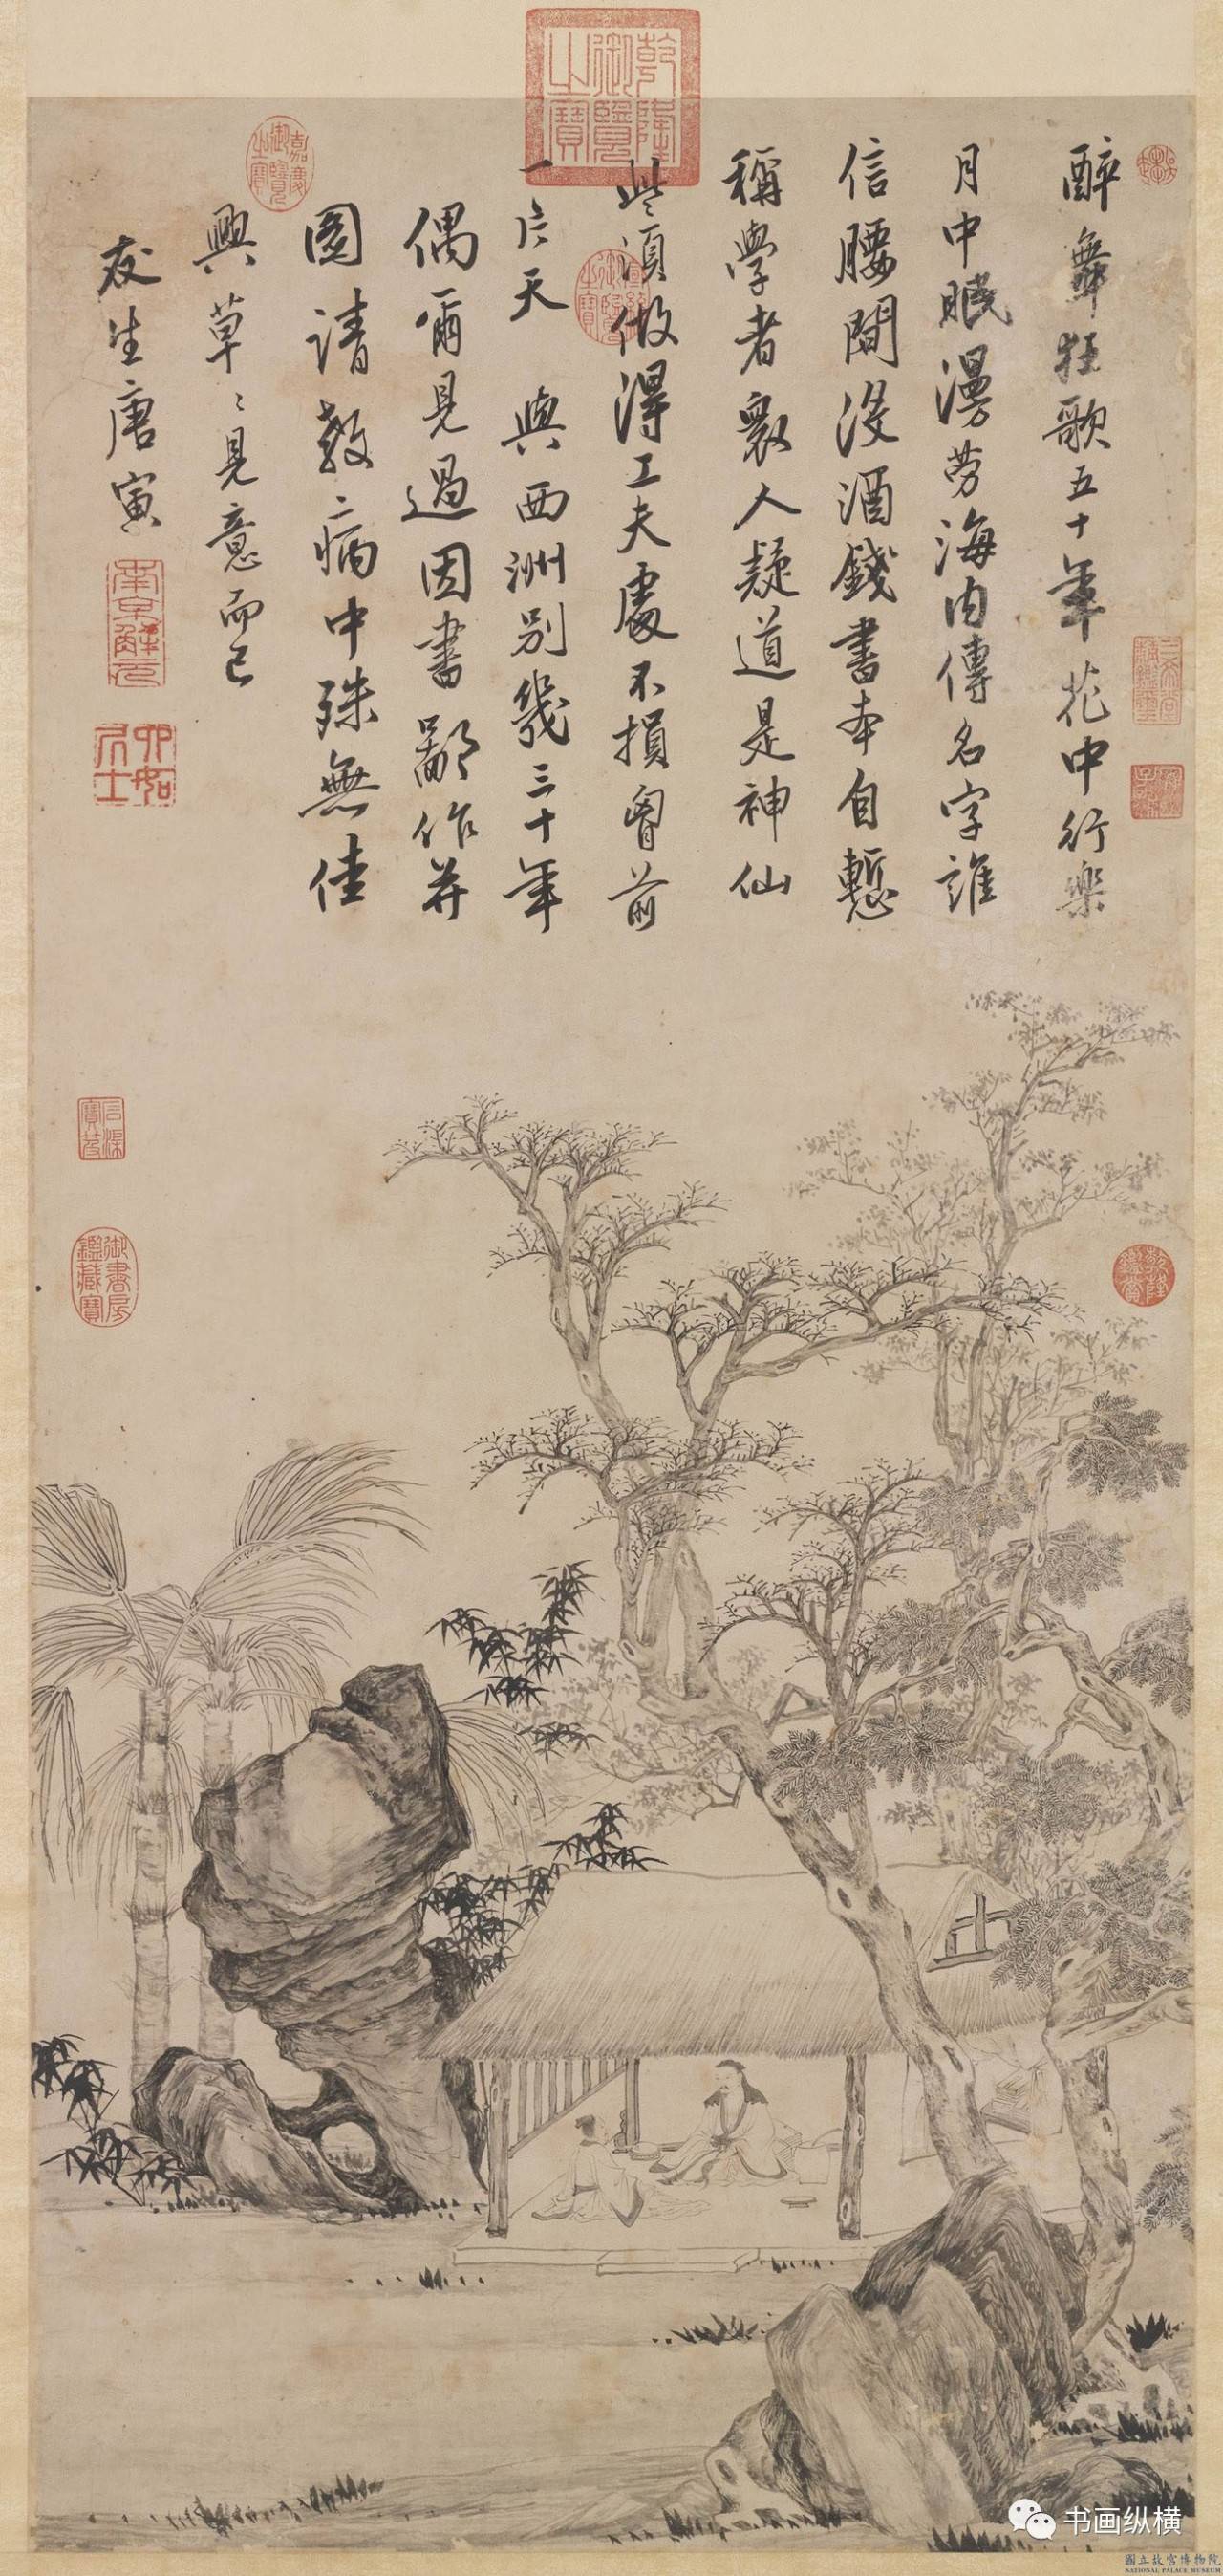 醉舞狂歌五十年花中行樂
月中眠漫勞海內傳名字誰
信腰間沒酒錢書本自慙
稱學者衆人疑道是神仙
些須做得工夫處不損胷前
一片天 與西洲別幾三十年
偶爾見過因書鄙作并
圖請教病中殊無佳
興草〻見意而已
友生唐寅
南京解元
六如居士
乾隆御覽之寶
嘉慶御覽之寶
宣統御覽之寶
三希堂精鑑璽
宜子孫
乾隆鑑賞
石渠寶笈
御書房鑑藏寶
书画纵横
國立故宮博物院
NATIONAL PALACE MUSEUM